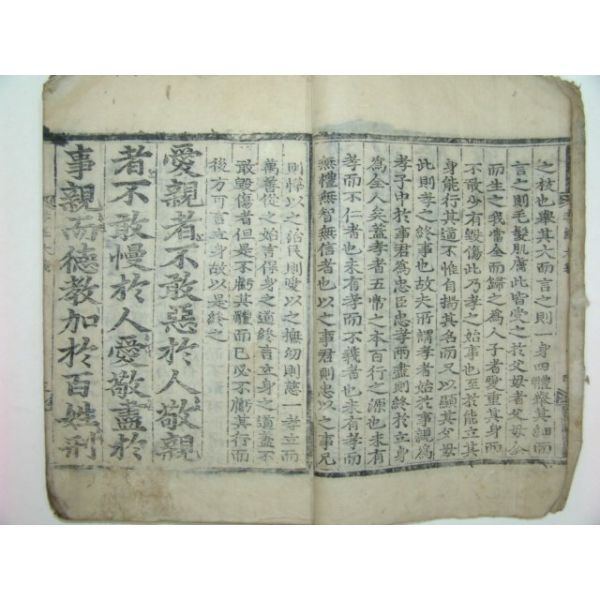 之枝也擧其大而言之則一身四體擧其細而
言之則毛髮肌膚此皆受之於父母者父母全
而生之我當全而歸之爲人子者愛重其身而
不敢少有毁傷此乃孝之始事也至於能立其
身能行其道不惟自揚其名而又以顯其父母
此則孝之終事也故夫所謂孝者始於事親爲
孝子中於事君爲忠臣忠孝兩盡則終於立身
爲全人矣蓋孝者五常之本百行之源也未有
孝而不仁者也未有孝而不義者也未有孝而
無禮無智無信者也以之事君則忠以之事兄
則悌以之治民則愛以之撫幼則慈一孝立而
萬善從之始言保身之道終言立身之道盖不
敢毁傷者但是不虧其體而已必不虧其行而
後方可言立身故以是終之
愛親者不敢惡於人敬親
者不敢慢於人愛敬盡於
事親而德敎加於百姓刑